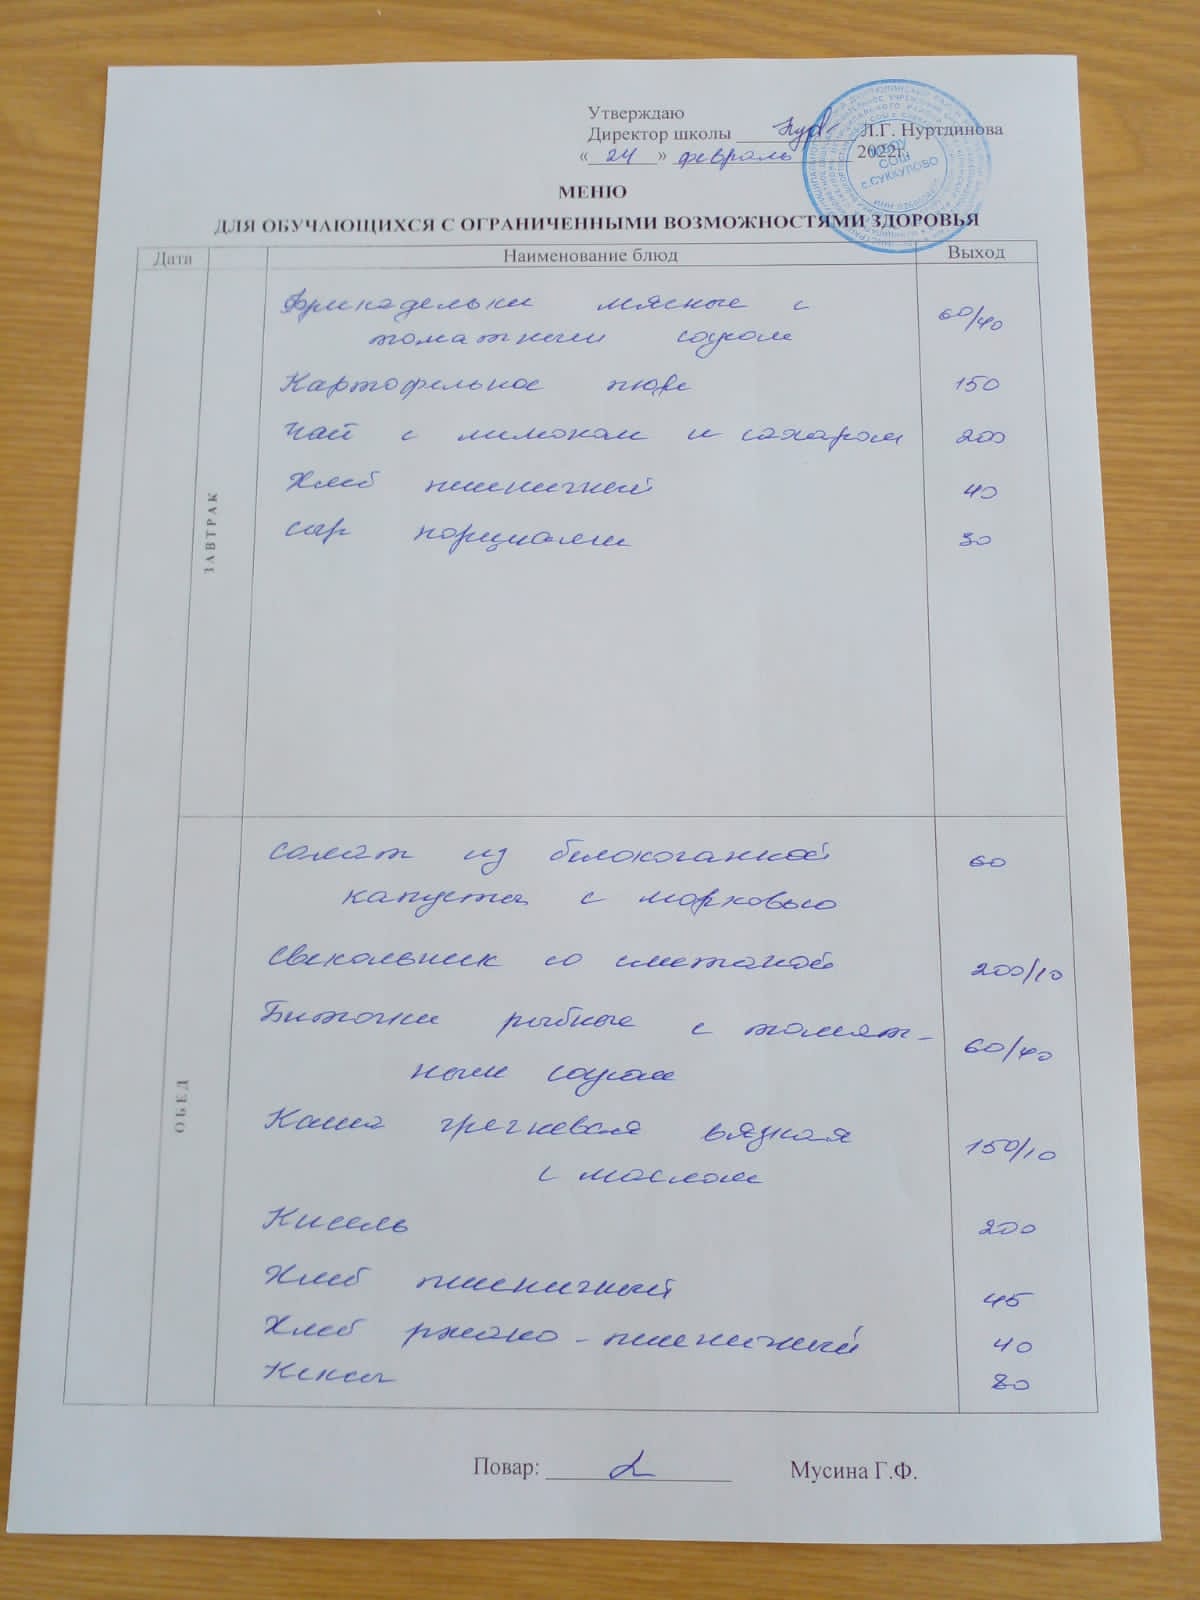 Утверждаю
Директор школы Л.Г. Нуртдинова
« 24 » февраль 2022г.
СОШ
с.СУККУЛОВО
МЕНЮ
ДЛЯ ОБУЧАЮЩИХСЯ С ОГРАНИЧЕННЫМИ ВОЗМОЖНОСТЯМИ ЗДОРОВЬЯ
Дата Наименование блюд Выход
ЗАВТРАК
Фрикадельки мясные с 60/40
томатным соусом
Картофельное пюре 150
Чай с лимоном и сахаром 200
Хлеб пшеничный 40
Сыр порциями 30
ОБЕД
Салат из белокочанной 60
капусты с морковью
Свекольник со сметаной 200/10
Биточки рыбные с томат- 60/40
ным соусом
Каша гречневая вязкая 150/10
с маслом
Кисель 200
Хлеб пшеничный 45
Хлеб ржано-пшеничный 40
Кексы 80
Повар: Мусина Г.Ф.